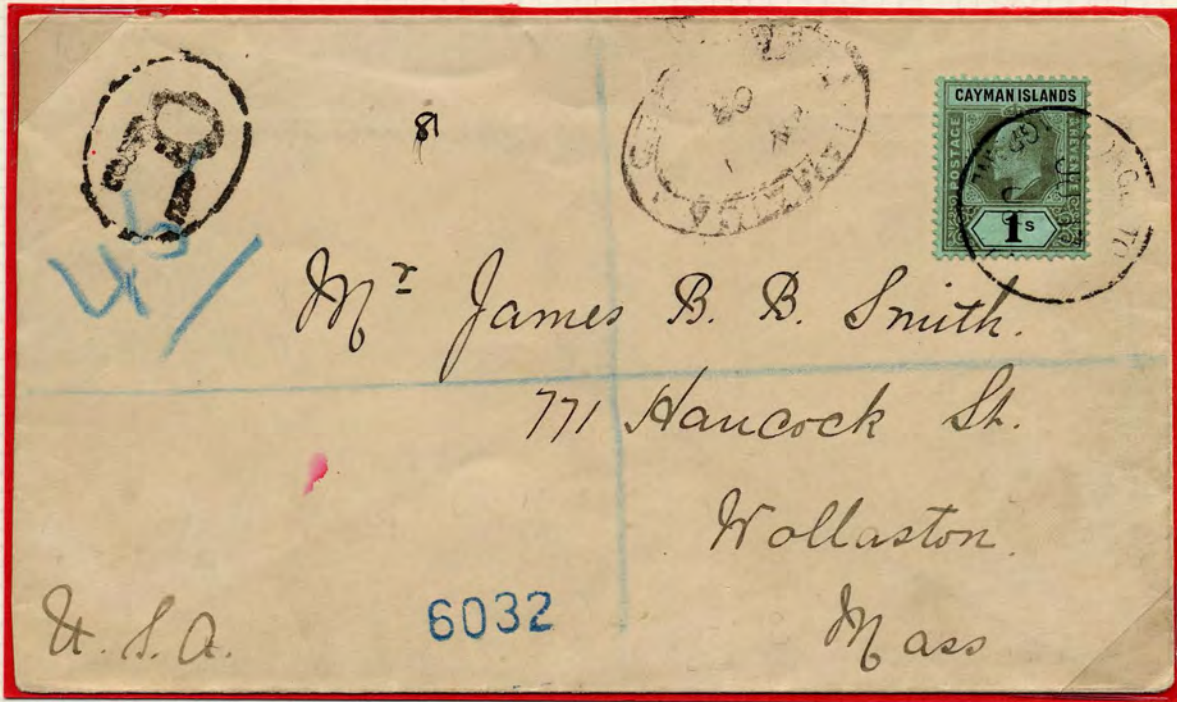 R
81
CAYMAN ISLANDS
POSTAGE
& REVENUE
1s
Mr James B. B. Smith.
771 Hancock St.
Wollaston.
Mass
U.S.A.
6032